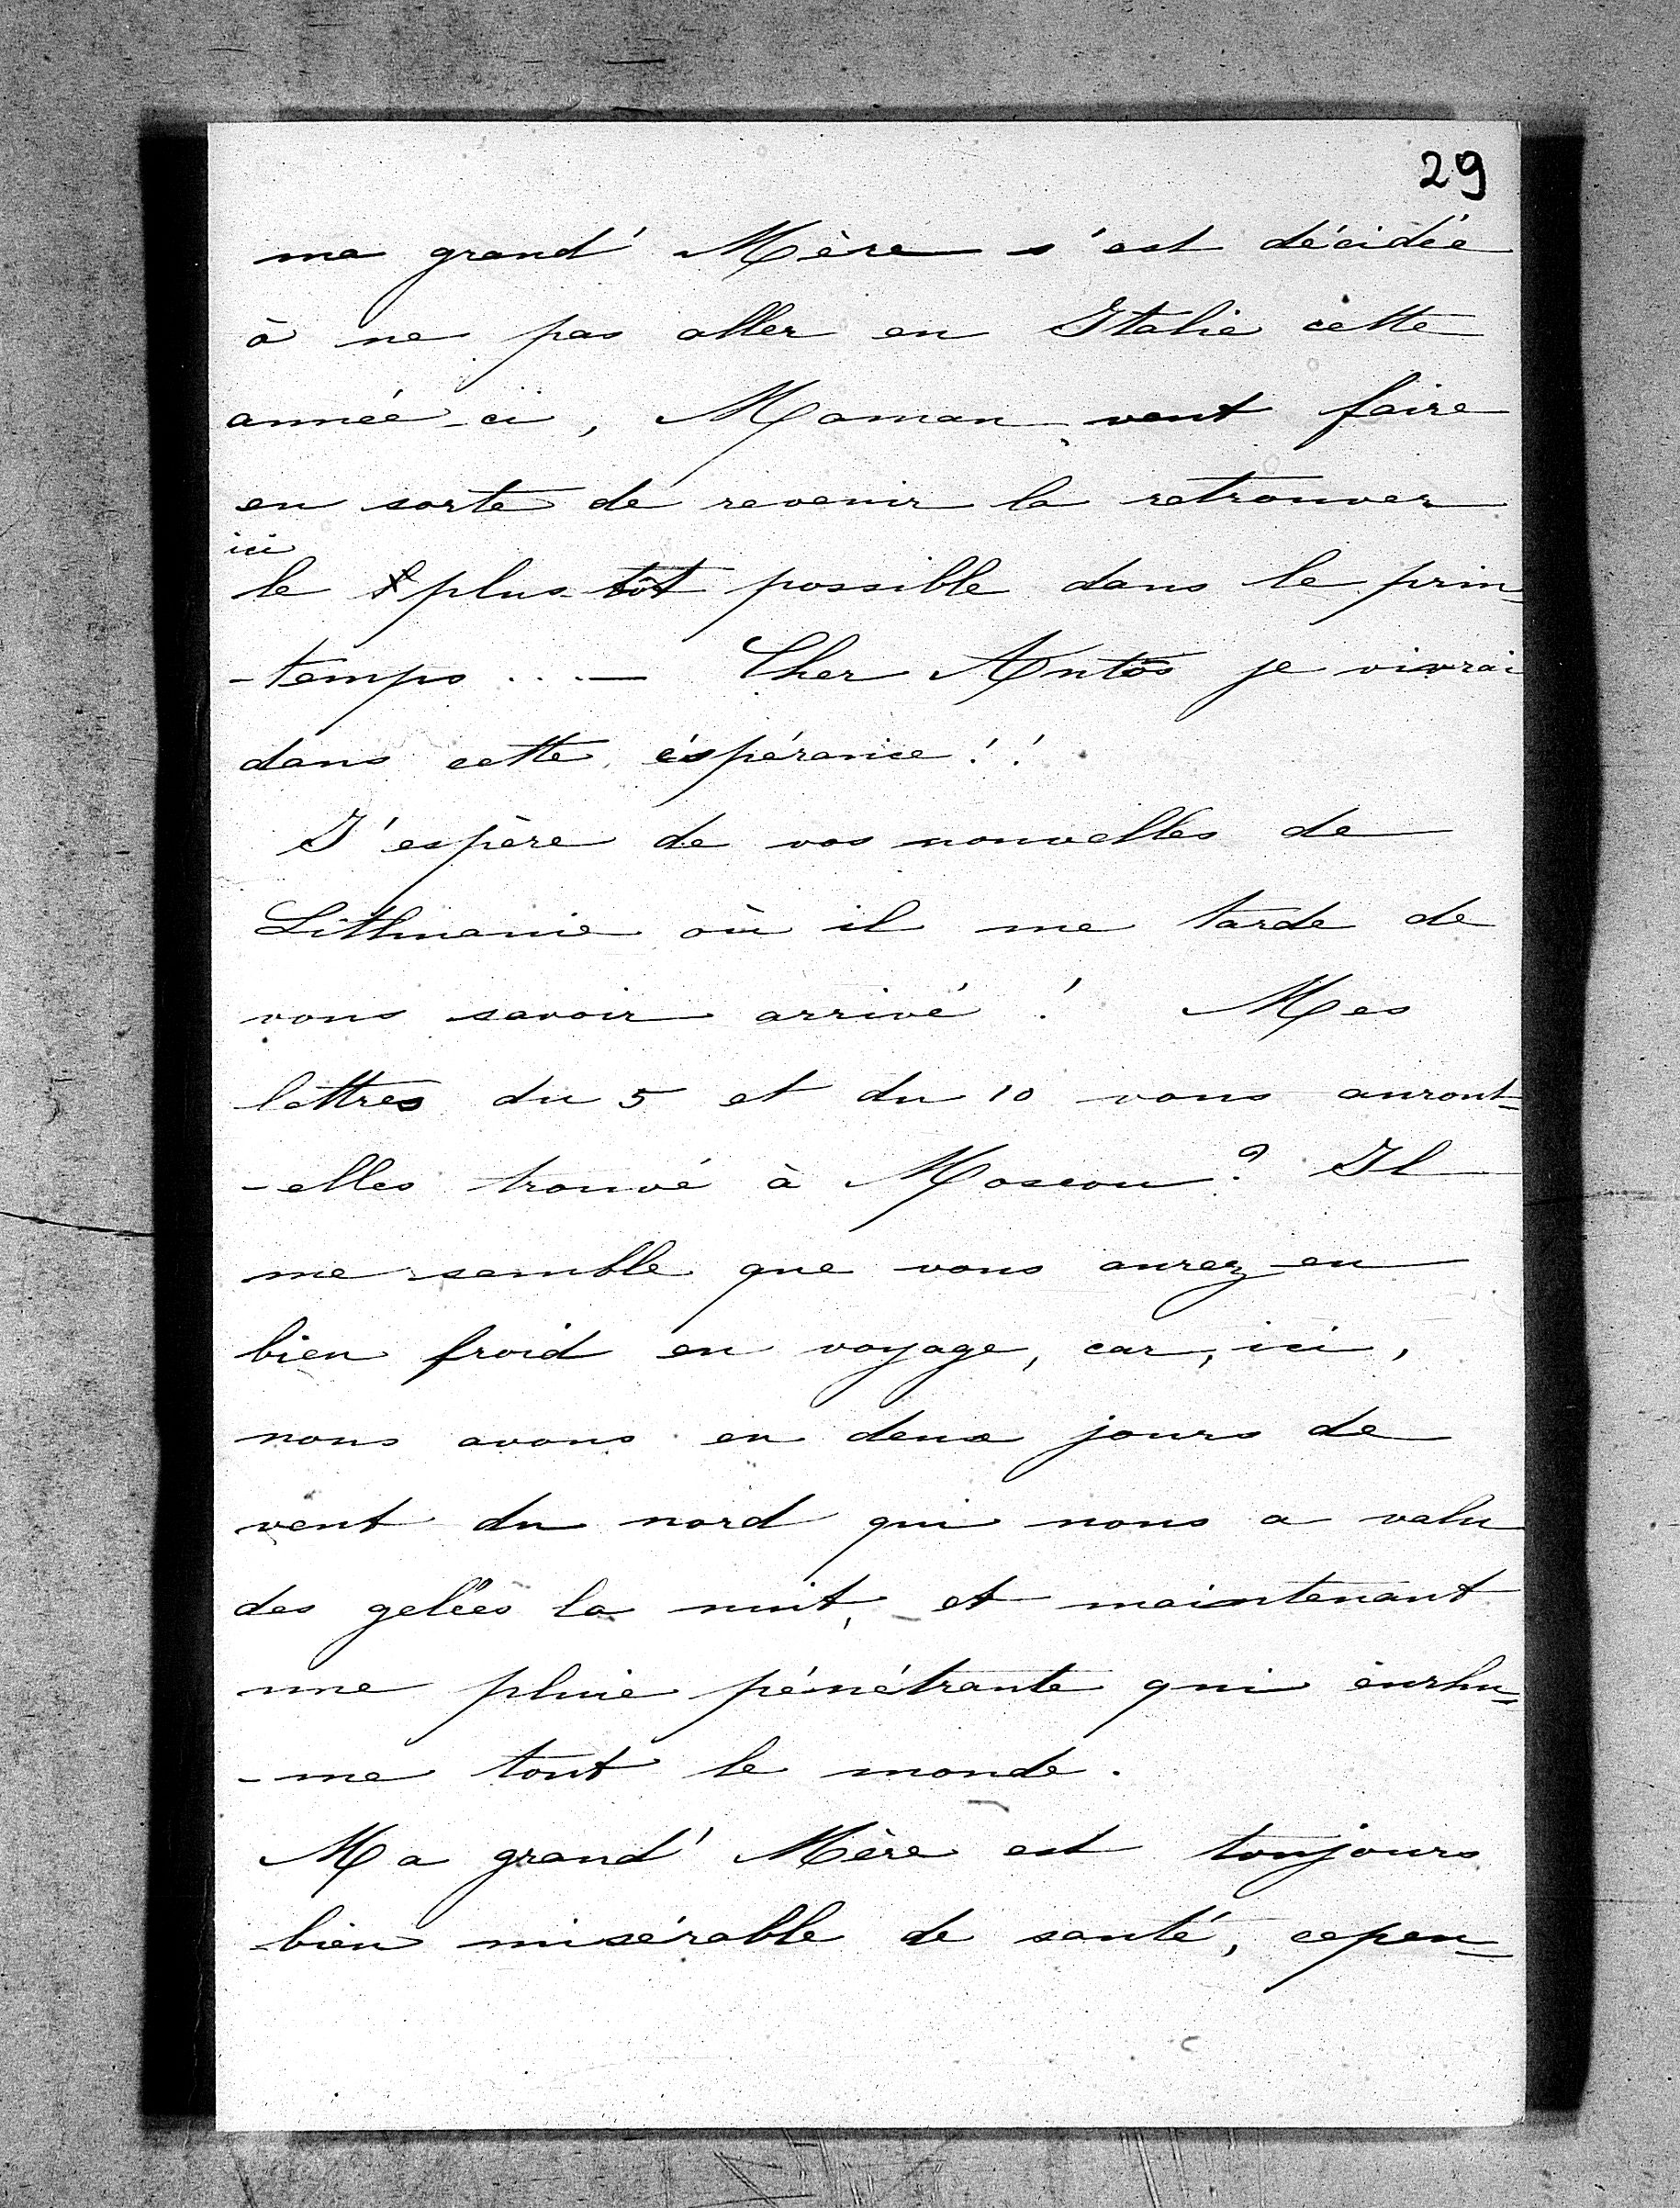 29
ma grand' Mère s'est décidée
à ne pas aller en Italie cette
année-ci, Maman veut faire
en sorte de revenir la retrouver
ici
le plus tôt possible dans le prin-
-temps ... — Cher Antos je vivrai
dans cette éspérance!!
J'espère de vos nouvelles de
Lithuanie où il me tarde de
vous savoir arrivé! Mes
lettres du 5 et du 10 vous auront-
-elles trouvé à Moscou? Il
me semble que vous aurez eu
bien froid en voyage, car, ici,
nous avons eu deux jours de
vent du nord qui nous a valu
des gelées la nuit, et maintenant
une pluie pénétrante qui enrhu-
-me tout le monde.
Ma grand' Mère est toujours
bien misérable de santé, cepen-